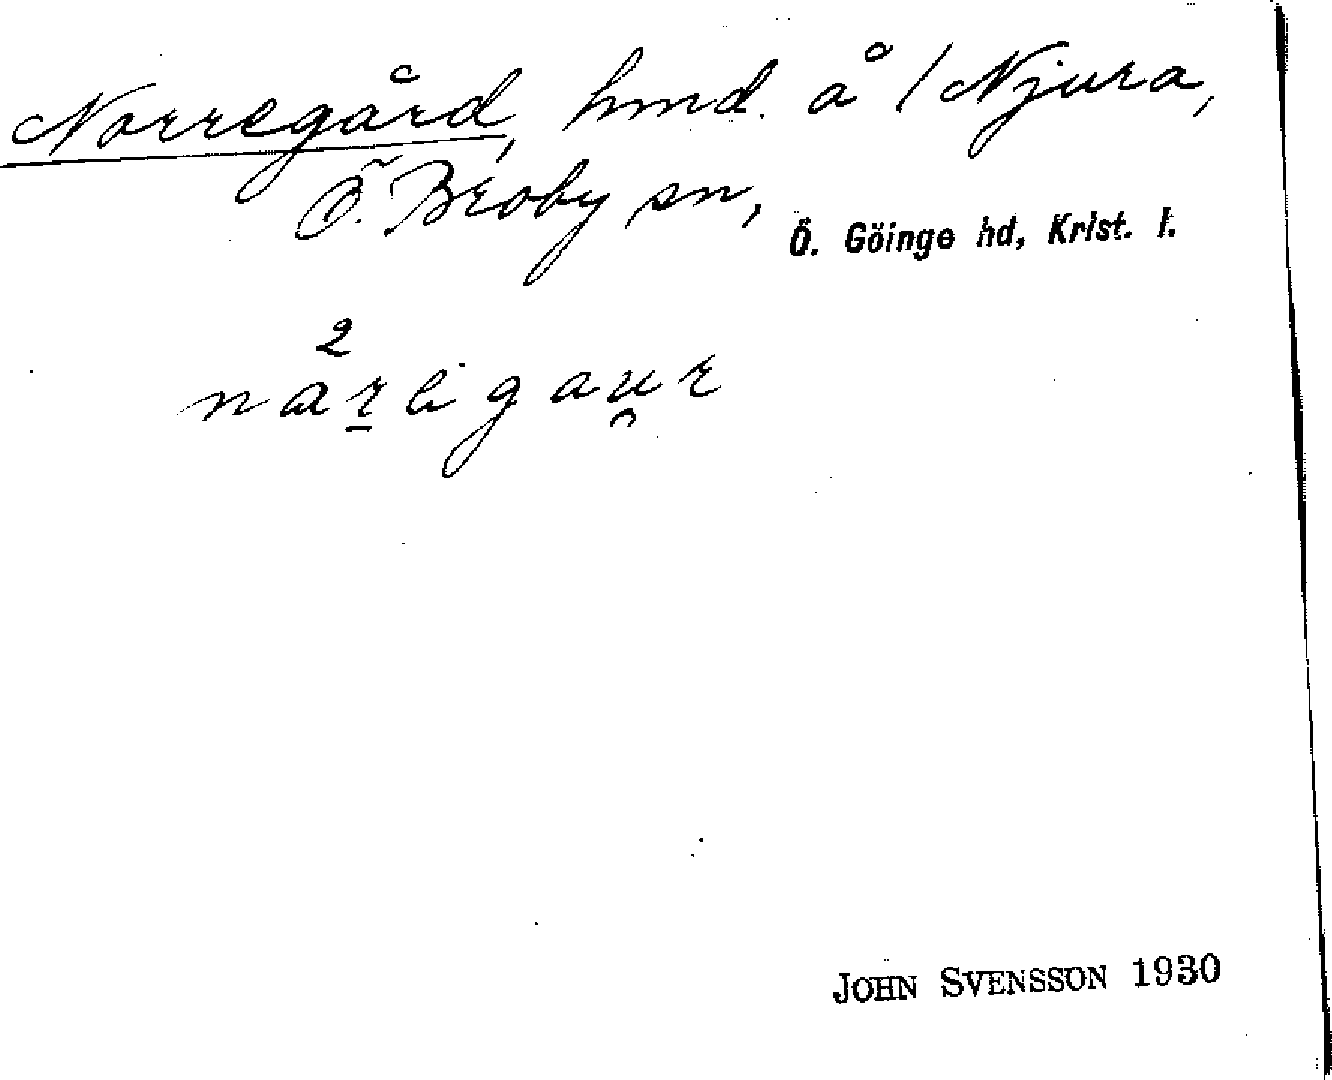 Norregård, hmd. å / Njura,
Ö. Broby sn, Ö. Göinge hd, Krist. l.
2
nårligaur
JOHN SVENSSON 1930